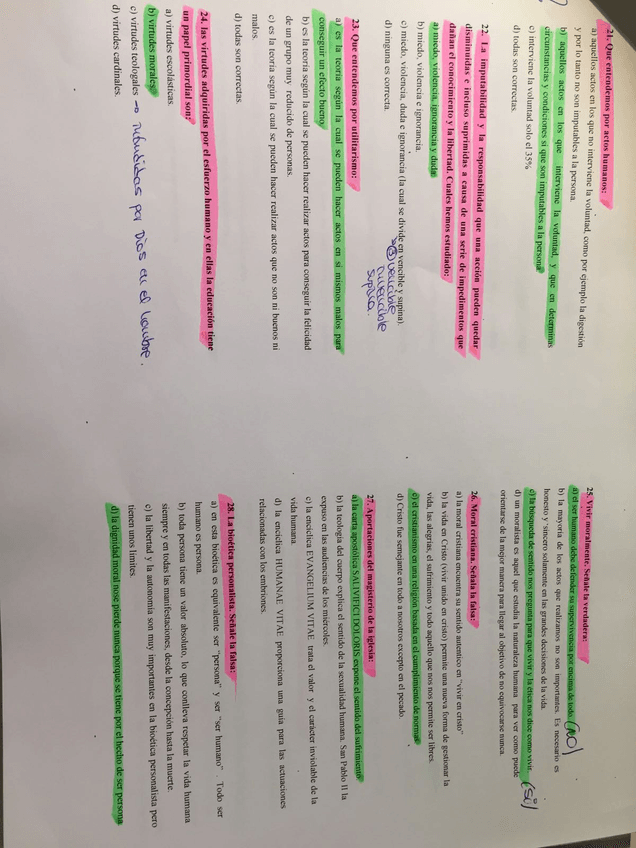 21. Que entendemos por actos humanos:
a) aquellos actos en los que no interviene la voluntad, como por ejemplo la digestión
y por lo tanto no son imputables a la persona.
b) aquellos actos en los que interviene la voluntad, y que en determinas
circunstancias y condiciones si que son imputables a la persona
c) interviene la voluntad solo el 35%
d) todas son correctas.
22. La imputabilidad y la responsabilidad que una acción pueden quedar
disminuidas e incluso suprimidas a causa de una serie de impedimentos que
dañan el conocimiento y la libertad. Cuales hemos estudiado:
a) miedo, violencia, ignorancia y duda
b) miedo, violencia e ignorancia.
c) miedo, violencia, duda e ignorancia (la cual se divide en vencible y supina).
vencible
invencible
supina.
d) ninguna es correcta.
23. Que entendemos por utilitarismo:
a) es la teoría según la cual se pueden hacer actos en si mismos malos para
conseguir un efecto bueno
b) es la teoría según la cual se pueden hacer realizar actos para conseguir la felicidad
de un grupo muy reducido de personas.
c) es la teoría según la cual se pueden hacer realizar actos que no son ni buenos ni
malos.
d) todas son correctas.
24. las virtudes adquiridas por el esfuerzo humano y en ellas la educación tiene
un papel primordial son:
a) virtudes escolásticas.
b) virtudes morales
c) virtudes teologales → infundidas por Dios en el hombre.
d) virtudes cardinales.
25. Vivir moralmente. Señale la verdadera:
a) el ser humano debe defender su supervivencia por encima de todo. (NO)
b) la mayoria de los actos que realizamos no son importantes. Es necesario es
honesto y sincero solamente en las grandes decisiones de la vida.
c) la búsqueda de sentido nos pregunta para que vivir y la ética nos dice como vivir. (SÍ)
d) un moralista es aquel que estudia la naturaleza humana para ver como puede
orientarse de la mejor manera para llegar al objetivo de no equivocarse nunca.
26. Moral cristiana. Señala la falsa:
a) la moral cristiana encuentra su sentido autentico en "vivir en cristo"
b) la vida en Cristo (vivir unido en cristo) permite una nueva forma de gestionar la
vida, las alegrias, el sufrimiento y todo aquello que nos nos permite ser libres.
c) el cristianismo en una religión basada en el cumplimiento de normas
d) Cristo fue semejante en todo a nosotros excepto en el pecado.
27. Aportaciones del magisterio de la iglesia:
a) la carta apostólica SALIVIFICI DOLORIS expone el sentido del sufrimiento
b) la teología del cuerpo explica el sentido de la sexualidad humana. San Pablo II la
expuso en las audiencias de los miércoles.
c) la encíclica EVANGELIUM VITAE trata el valor y el carácter inviolable de la
vida humana.
d) la encíclica HUMANAE VITAE proporciona una guía para las actuaciones
relacionadas con los embriones.
28. La bioética personalista. Señale la falsa:
a) en esta bioética es equivalente ser "persona" y ser "ser humano". Todo ser
humano es persona.
b) toda persona tiene un valor absoluto, lo que conlleva respetar la vida humana
siempre y en todas las manifestaciones, desde la concepción hasta la muerte.
c) la libertad y la autonomía son muy importantes en la bioética personalista pero
tienen unos limites.
d) la dignidad moral nose pierde nunca porque se tiene por el hecho de ser persona